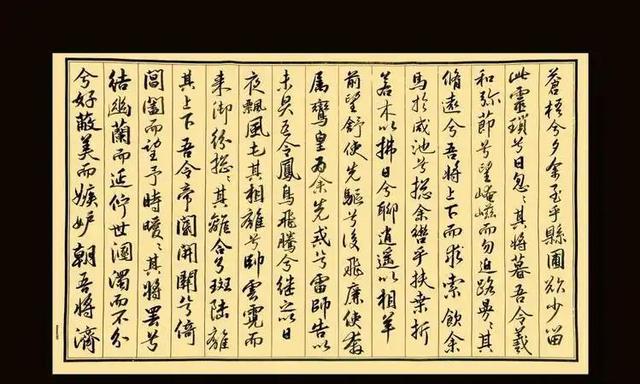 蒼梧兮夕余至乎縣圃欲少留
此靈瑣兮日忽〻其將暮吾令羲
和弭節兮望崦嵫而勿迫路曼〻其
脩遠兮吾將上下而求索飲余
馬於咸池兮總余轡乎扶桑折
若木以拂日兮聊逍遙以相羊
前望舒使先驅兮後飛廉使奔
属鸞皇為余先戒兮雷師告以
未具吾令鳳鳥飛騰兮繼之以日
夜飄風屯其相離兮帥雲霓而
來御紛總〻其離合兮斑陸離
其上下吾令帝閽開關兮倚
閶闔而望予時曖〻其將罷兮
結幽蘭而延佇世溷濁而不分
兮好蔽美而嫉妒朝吾將濟